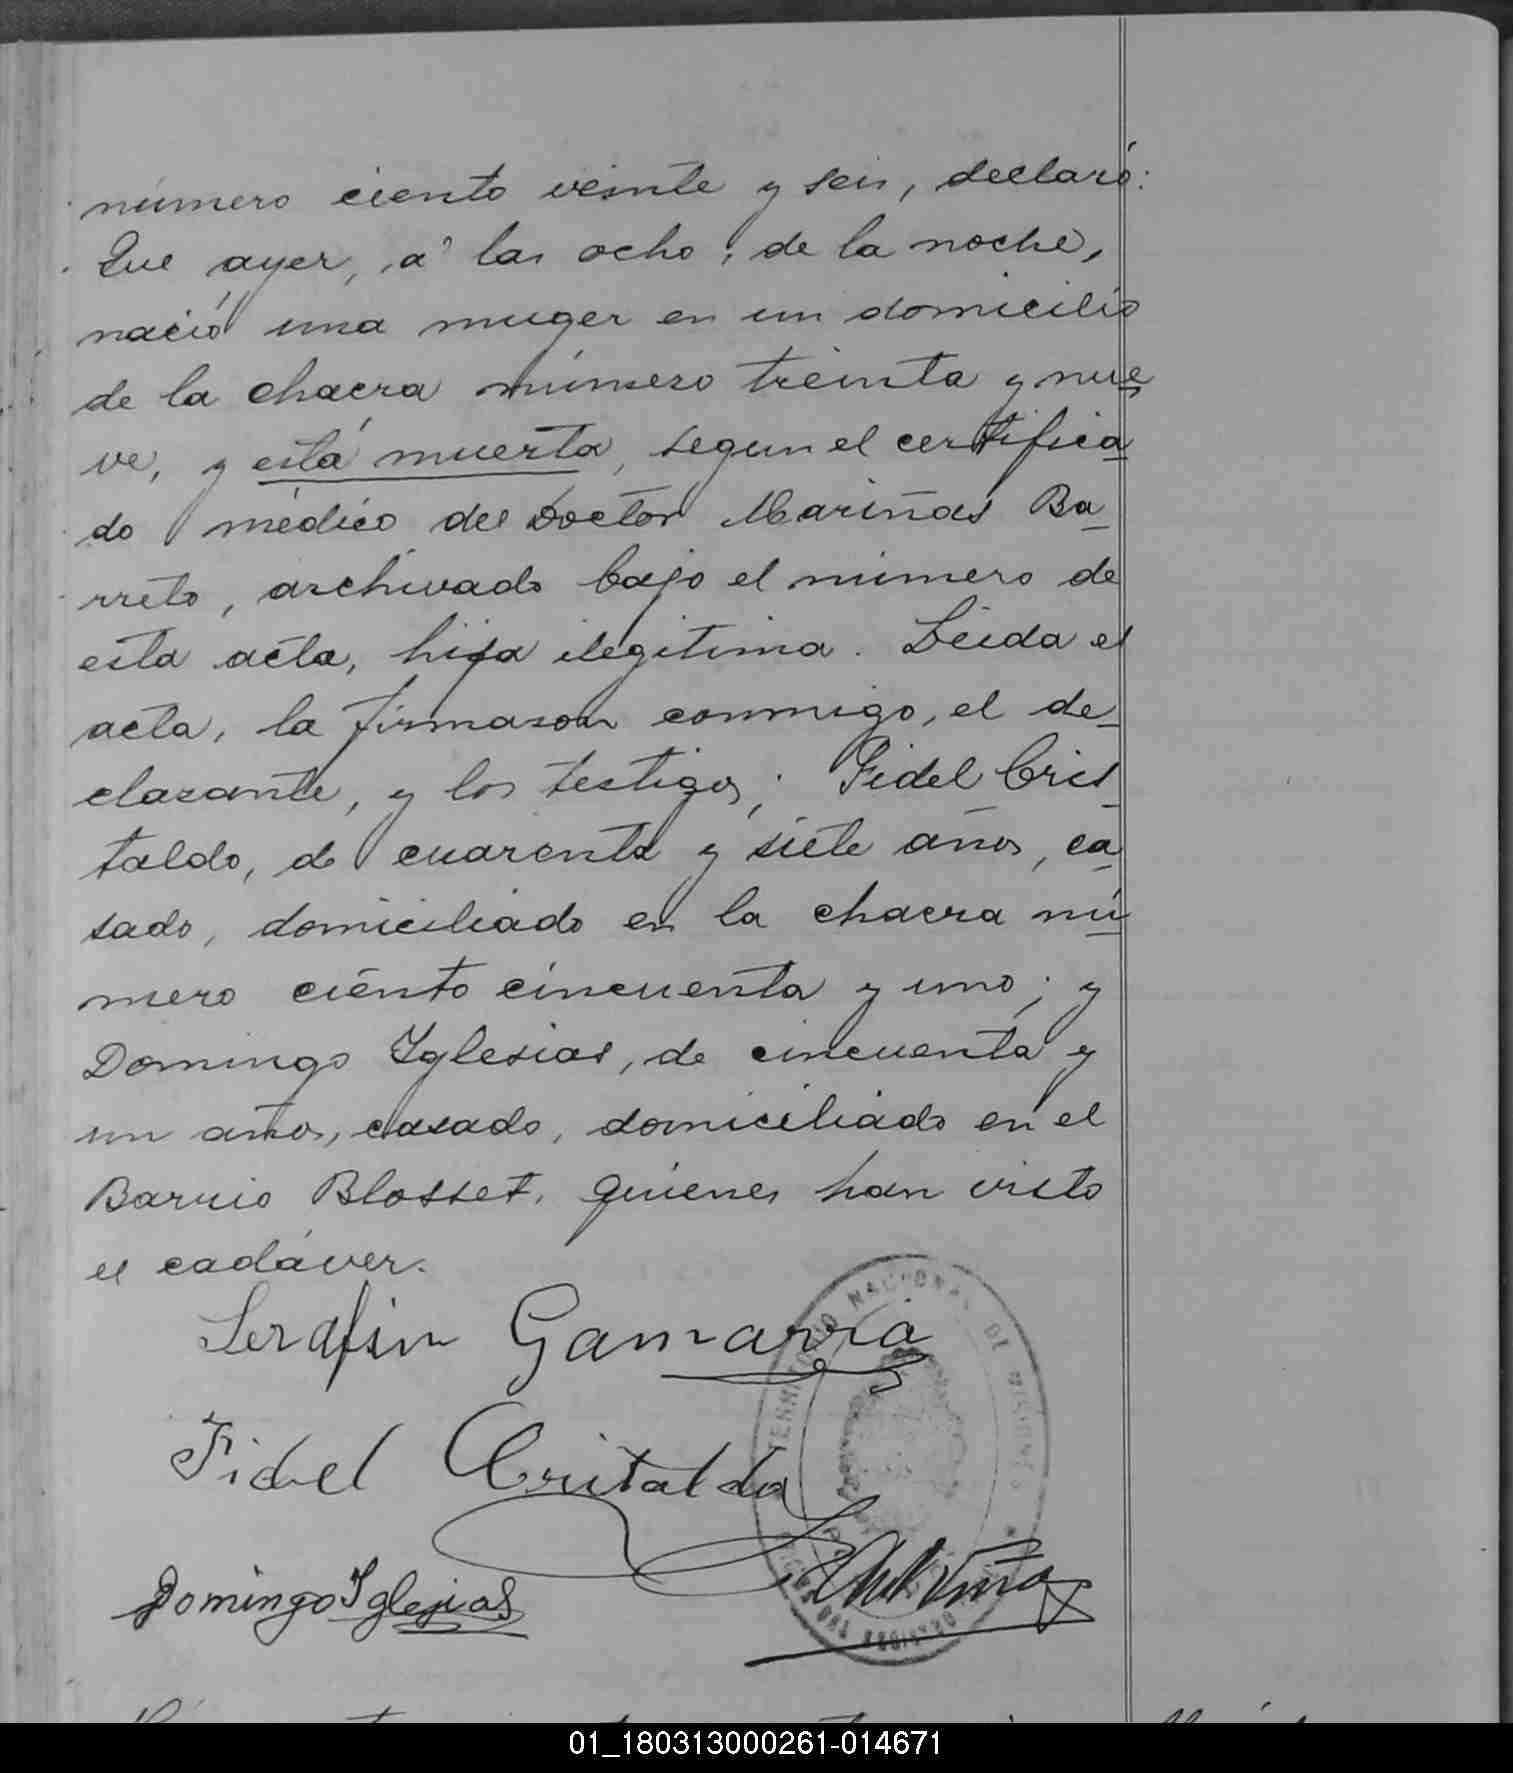 número ciento veinte y seis, declaró:
Que ayer, á las ocho, de la noche,
nació una muger en un domicilio
de la chacra número treinta y nue-
ve, y está muerta, segun el certifica-
do médico del Doctor Mariñas Ba-
rreto, archivado bajo el número de
esta acta, hija ilegitima. Leida el
acta, la firmaron conmigo, el de-
clarante, y los testigos; Fidel Cris-
taldo, de cuarenta y siete años, ca-
sado, domiciliado en la chacra nú-
mero ciento cincuenta y uno; y
Domingo Yglesias, de cincuenta y
un años, casado, domiciliado en el
Barrio Blosset, quienes han visto
el cadáver.
Serafin Gamarra
Fidel Cristaldo
Domingo Yglesias
TERRITORIO NACIONAL DE MISIONES
01_180313000261-014671